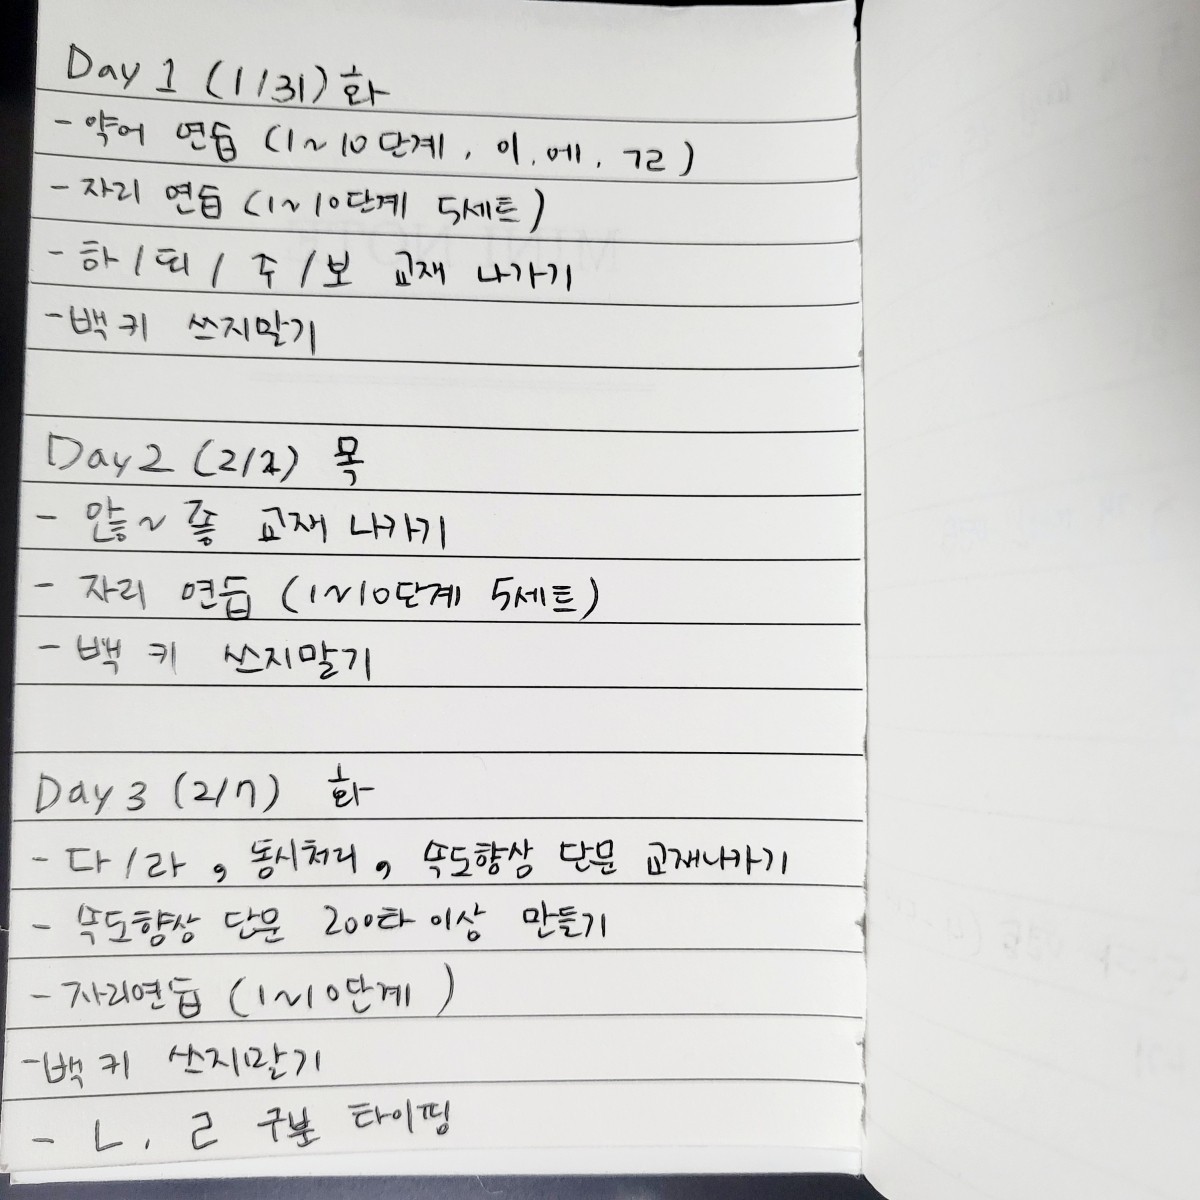 Day 1 (1/31) 화
- 약어 연습 (1~10단계, 이, 에, ㄱㄹ)
- 자리 연습 (1~10단계 5세트)
- 하/되/주/보 교재 나가기
- 백키 쓰지말기
Day2 (2/2) 목
- 않~좋 교재 나가기
- 자리 연습 (1~10단계 5세트)
- 백 키 쓰지말기
Day 3 (2/7) 화
- 다/라, 동시처리, 속도향상 단문 교재나가기
- 속도향상 단문 200타 이상 만들기
- 자리연습 (1~10단계)
- 백 키 쓰지말기
- ㄴ, ㄹ 구분 타이핑
MINI NOTE